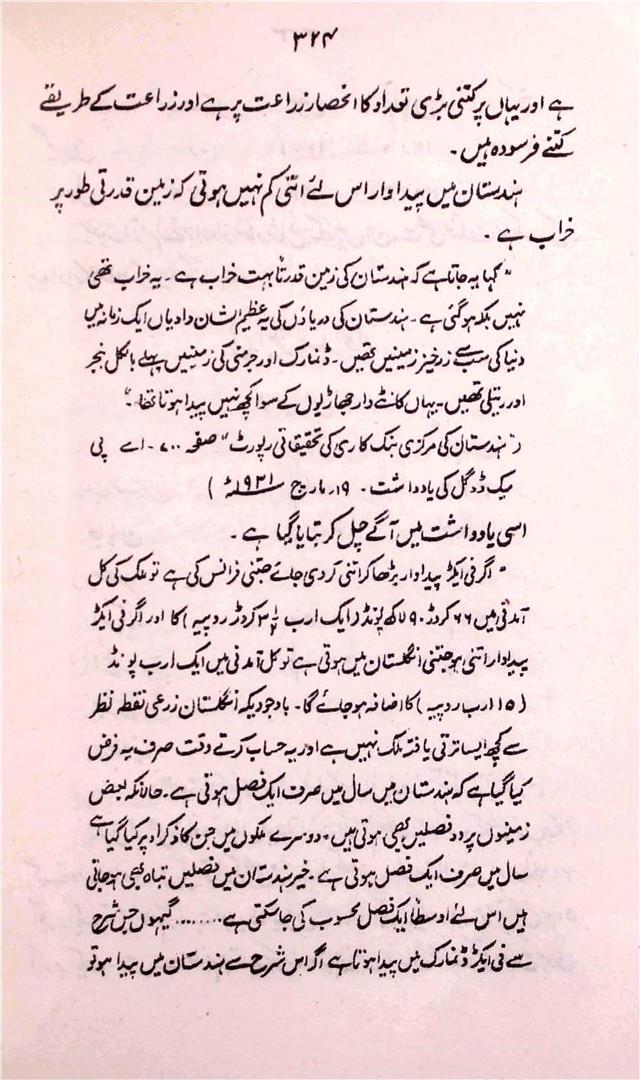 ۳۲۴
ہے اور یہاں پر کتنی بڑی تعداد کا انحصار زراعت پر ہے اور زراعت کے طریقے
کتنے فرسودہ ہیں۔
ہندستان میں پیداوار اس لئے اتنی کم نہیں ہوتی کہ زمین قدرتی طور پر
خراب ہے۔
"کہا یہ جاتا ہے کہ ہندستان کی زمین قدرتاً بہت خراب ہے۔ یہ خراب تھی
نہیں بلکہ ہو گئی ہے۔ ہندستان کی دریاؤں کی یہ عظیم الشان وادیاں ایک زمانہ میں
دنیا کی سب سے زرخیز زمینیں تھیں۔ ڈنمارک اور جرمنی کی زمینیں پہلے بالکل بنجر
اور ریتلی تھیں۔ یہاں کانٹے دار جھاڑیوں کے سوا کچھ نہیں پیدا ہوتا تھا۔"
("ہندستان کی مرکزی بنک کاری کی تحقیقاتی رپورٹ" صفحہ ۷۰۰۔ اے پی
میک ڈوگل کی یادداشت۔ ۱۹؍ مارچ ۱۹۳۱ء)
اسی یادداشت میں آگے چل کر بتایا گیا ہے۔
"اگر فی ایکڑ پیداوار بڑھا کر اتنی کر دی جائے جتنی فرانس کی ہے تو ملک کی کل
آمدنی میں ۶۶ کروڑ ۹۰ لاکھ پونڈ (ایک ارب ۳½ کروڑ روپیہ) کا اور اگر فی ایکڑ
پیداوار اتنی ہو جتنی انگلستان میں ہوتی ہے تو کل آمدنی میں ایک ارب پونڈ
(۱۵ ارب روپیہ) کا اضافہ ہو جائے گا۔ باوجودیکہ انگلستان زرعی نقطہ نظر
سے کچھ ایسا ترقی یافتہ ملک نہیں ہے اور یہ حساب کرتے وقت صرف یہ فرض
کیا گیا ہے کہ ہندستان میں سال میں صرف ایک فصل ہوتی ہے۔ حالانکہ بعض
زمینوں پر دو فصلیں بھی ہوتی ہیں۔ دوسرے ملکوں میں جن کا ذکر اوپر کیا گیا ہے
سال میں صرف ایک فصل ہوتی ہے۔ خیر ہندستان میں فصلیں تباہ بھی ہو جاتی
ہیں اس لئے اوسطاً ایک فصل محسوب کی جا سکتی ہے........ گیہوں جس شرح
سے فی ایکڑ ڈنمارک میں پیدا ہوتا ہے اگر اس شرح سے ہندستان میں پیدا ہو تو